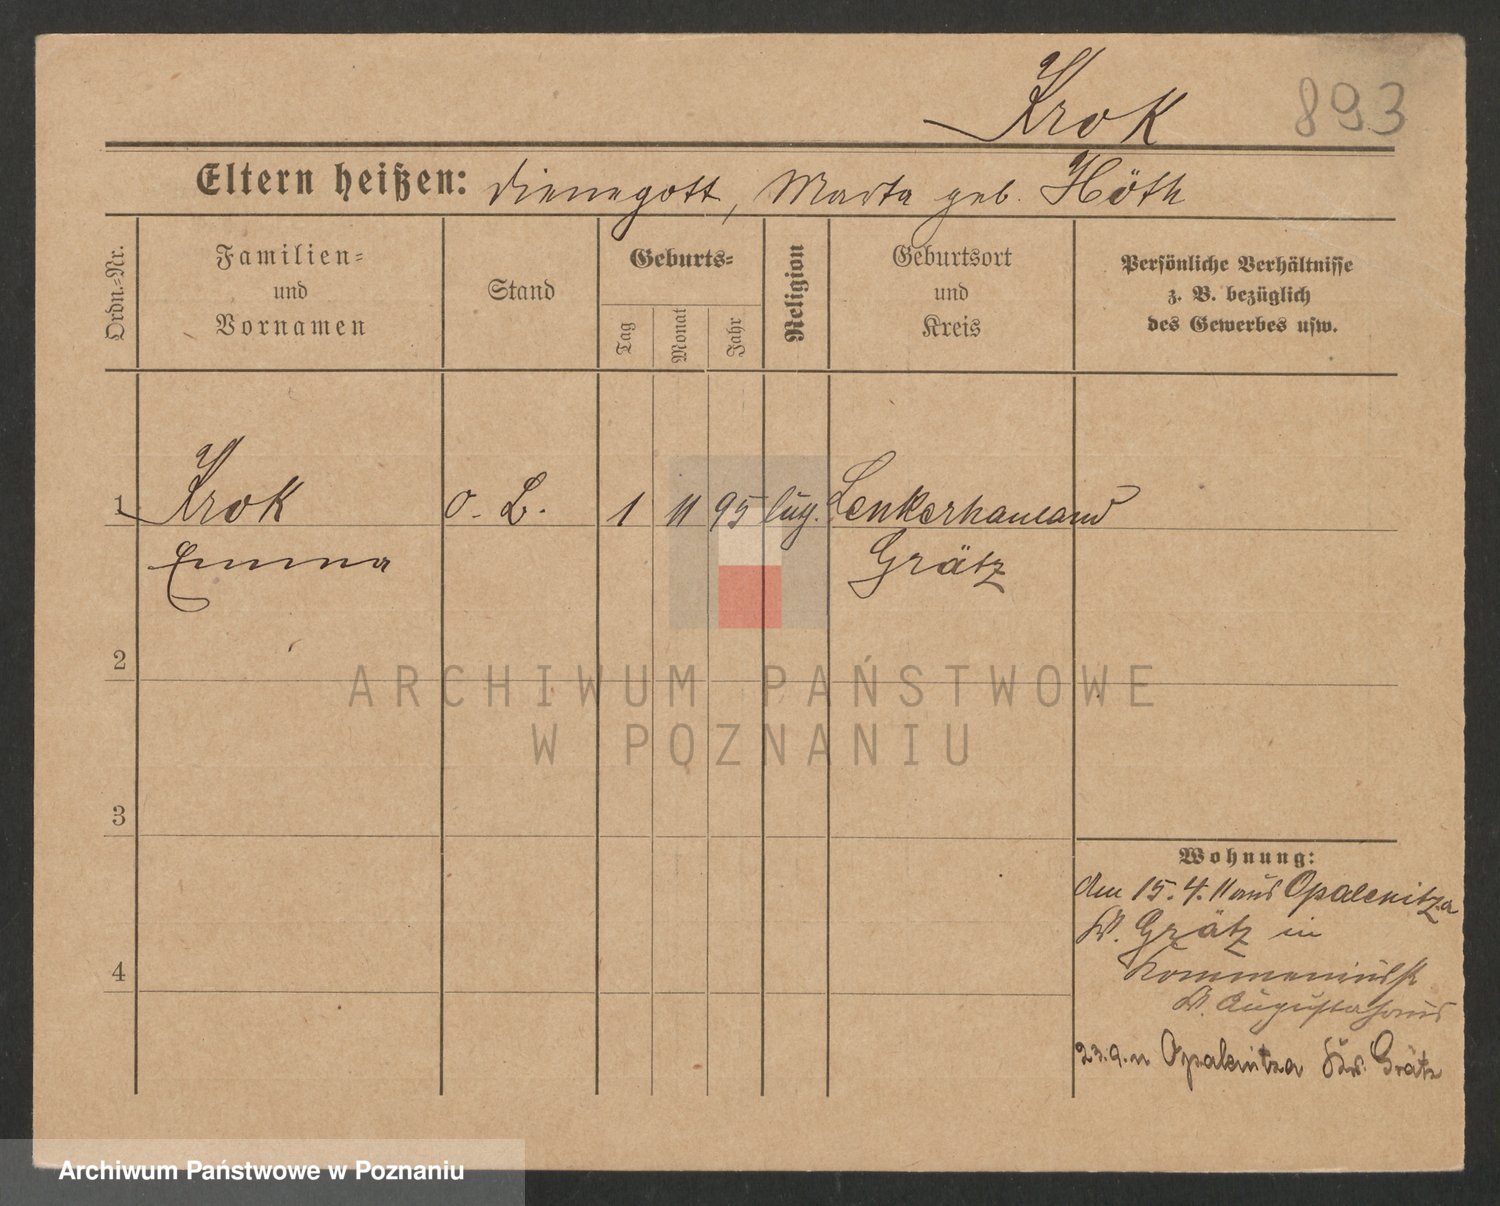 Krok 893
Eltern heißen: Dienegott, Marta geb. Höth
Ordn.-Nr.
Familien-
und
Vornamen
Stand
Geburts-
Tag
Monat
Jahr
Religion
Geburtsort
und
Kreis
Persönliche Verhältnisse
z. B. bezüglich
des Gewerbes usw.
1 Krok o. L. 1 11 95 Lenkerhauland
Emma Grätz
2
3
4
Wohnung:
Am 15.4.11 aus Opalenitza
Kr. Grätz in
Kr. Augustahaus
23.9.11 Opalenitza Grätz
ARCHIWUM PAŃSTWOWE
W POZNANIU
Archiwum Państwowe w Poznaniu